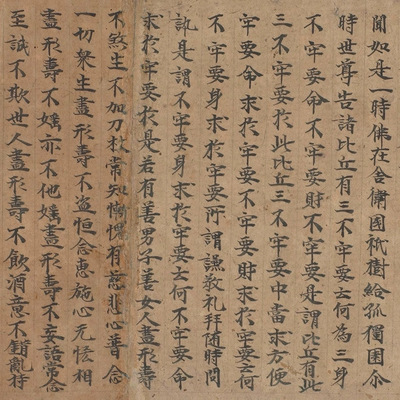 聞如是一時佛在舍衛國祇樹給孤獨園尒
時世尊告諸比丘有三不牢要云何為三身
不牢要命不牢要財不牢要是謂比丘有此
三不牢要扵此比丘三不牢要中當求方便
牢要命求扵牢要不牢要財求扵牢要云何
不牢要身求扵牢要所謂謙敬礼拜随時問
訊是謂不牢要身求扵牢要云何不牢要命
求扵牢要扵是若有善男子善女人盡形壽
不煞生不加刀杖常知慚愧有慈悲心普念
一切衆生盡形壽不盜恒念惠施心无恡相
盡形壽不婬亦不他婬盡形壽不妄語常念
至誠不欺世人盡形壽不飲酒意不錯亂持